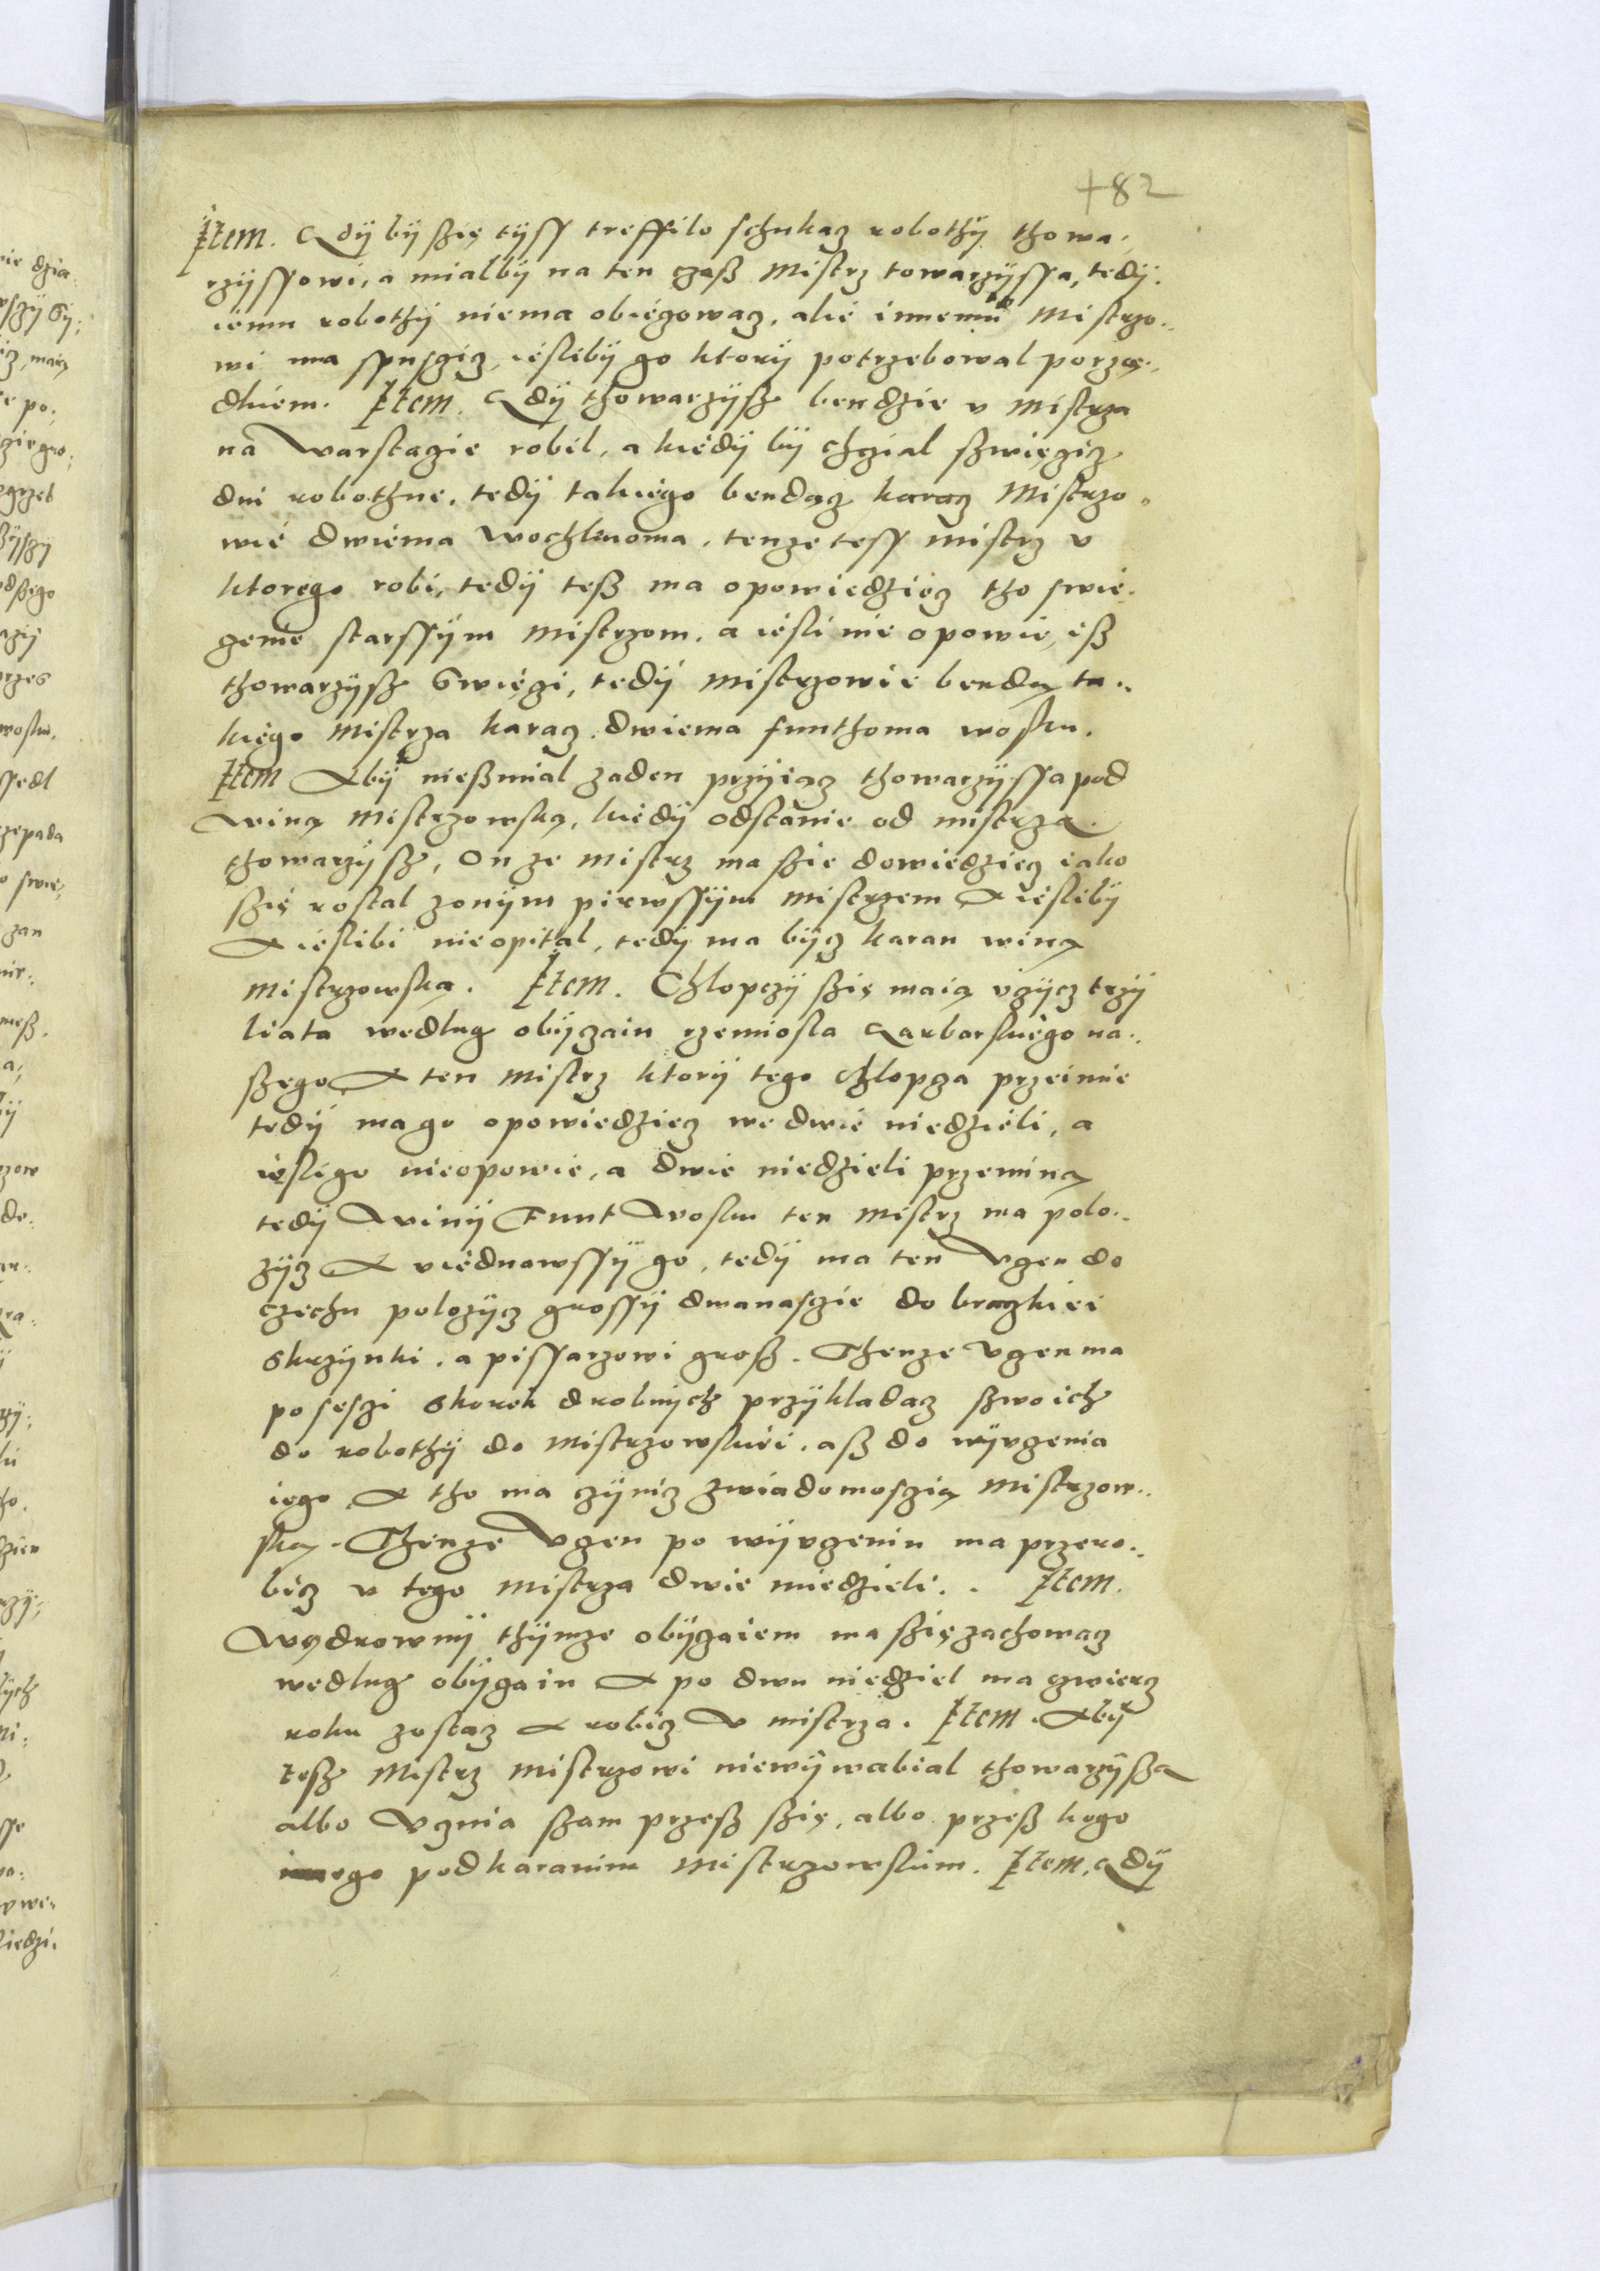 +82
Item. Gdÿ bÿ ßię tÿss treffilo schukacz robothÿ thowa.
rzÿssowi, a mialbÿ na ten czaß Mistrz towarzÿssa, tedÿ.
iemu robothÿ niema obiegowacz, alie innemu Mistrzo..
wi ma spusczicz, iesliby go ktorÿ potrzebowal porzą..
dkiem. Item. Gdÿ thowarzÿsz bendzie v Mistrza
na Warstacie robil, a kiedÿ bÿ chczial szwięczicz
dni robothne, tedÿ takiego bendącz karacz Mistrzo.
wie dwiema Wochlunoma, tenze tess mistrz v
ktorego robi, tedÿ teß ma opowiedziecz tho swie.
czenie starssÿm Mistrzom, a iesli nie opowie, eß
thowarzÿsz Swięczi, tedÿ Mistrzowie bendą ta..
kiego Mistrza karacz dwiema funthoma wosku.
Item Abÿ nießmial zaden przÿiącz thowarzÿssa pod
winą Mistrzowską, kiedÿ odstanie od mistrza
thowarzÿsz, On ze Mistrz ma szie dowiedziecz iako
szię rostal zonÿm pirwssÿm mistrzem A ieslibÿ
A ieslibi nieopital, tedÿ ma bÿcz karan winą
mistrzowską. Item. Chlopczÿ szię maią vczÿcz trzÿ
liata wedlug obÿczaiu rzemiosla Garbarskiego na..
szego A ten Mistrz ktorÿ tego chlopcza przeimie
tedÿ ma go opowiedziecz we dwie niedzieli, a
iesligo nieopowie, a dwie niedzieli przeminą
tedÿ Winÿ Funt Wosku ten mistrz ma polo..
zÿcz A viednawssÿ go, tedÿ ma ten Vczen do
czechu polozÿcz grossÿ dwanasczie do braczkiei
Skrzÿnki, a pissarzowi groß. Thenze Vczen ma
po sesczi Skorek drobnÿch przÿkladacz szwoich
do robothÿ do Mistrzowskiei, aß do wÿvczenia
iego A tho ma czÿnicz zwiadomosczią Mistrzow..
ską. Thenze Vczen po wÿvczeniu ma przero..
bicz v tego Mistrza dwie niedzieli.. Item.
Wędrownÿ thÿmze obÿczaiem ma szię zachowacz
wedlug obÿczaiu A po dwu niedziel ma czwiercz
roku zostacz A robicz V mistrza. Item. Abÿ
tesz Mistrz Mistrzowi niewÿwabial thowarzÿsza
albo Vcznia szam przesz szię, albo przesz kogo
inego pod karanim Mistrzowskim. Item. Gdÿ